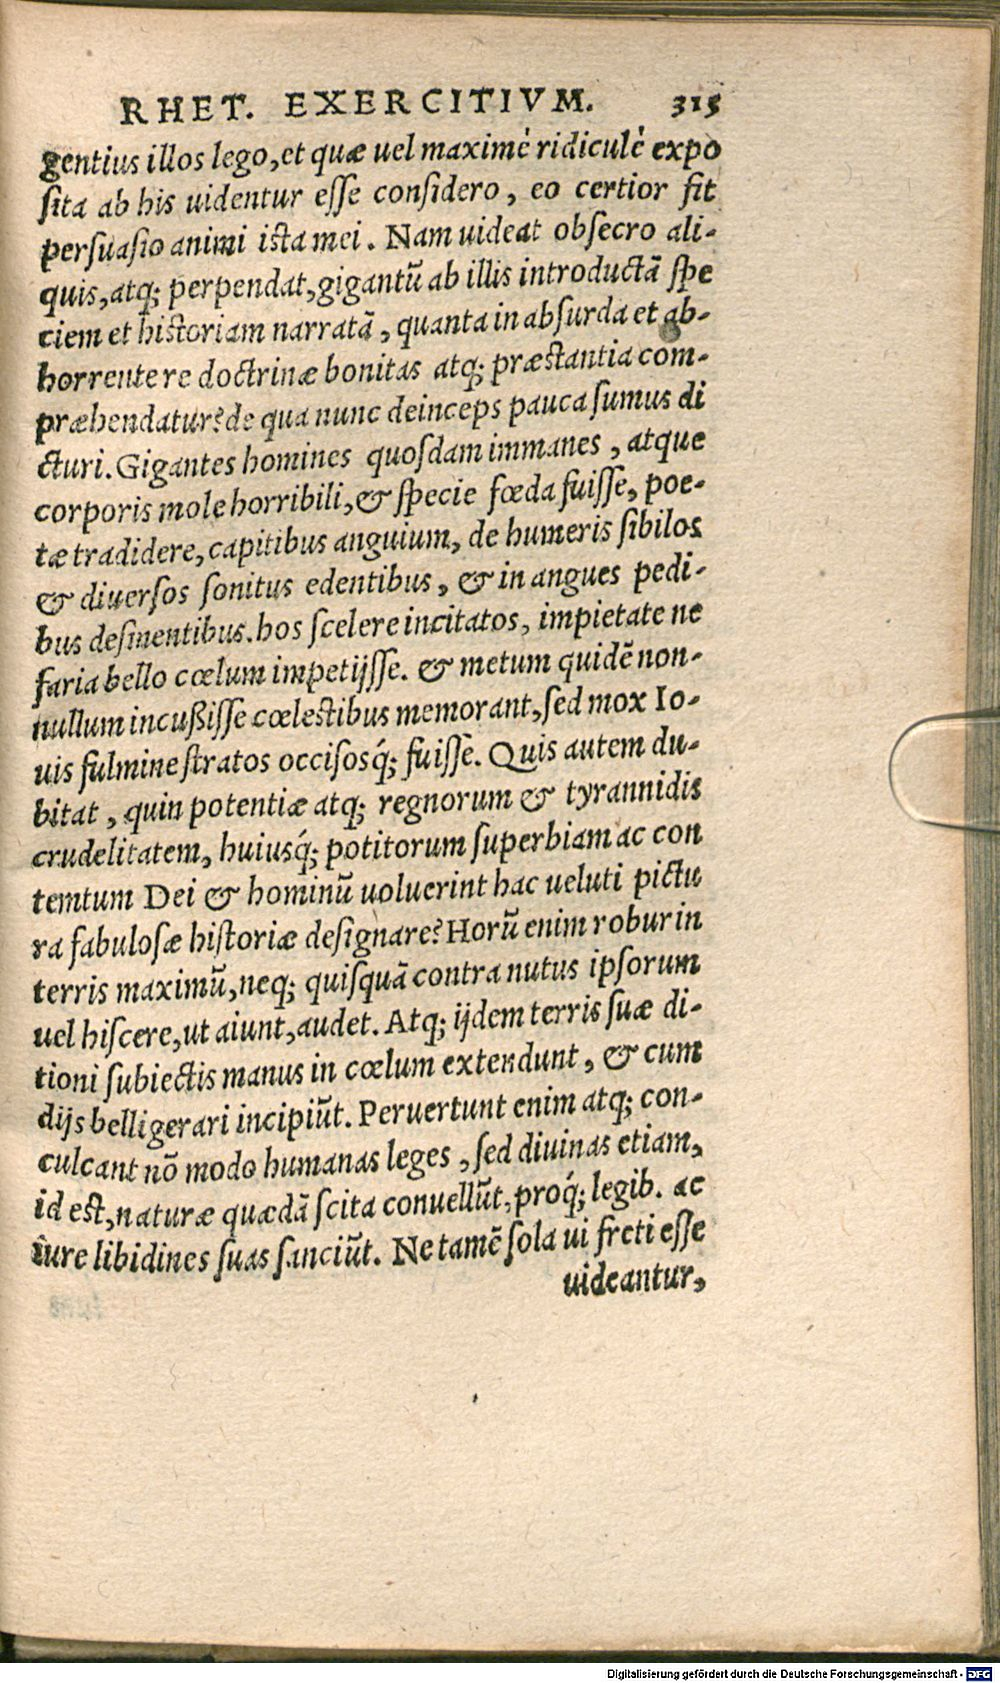 RHET. EXERCITIVM. 315
gentius illos lego, et quæ uel maximè ridiculè expo
ſita ab his uidentur eſſe conſidero, eo certior fit
perſuaſio animi iſta mei. Nam uideat obſecro ali-
quis, atq; perpendat, gigantũ ab illis introductã ſpe
ciem et hiſtoriam narratã, quanta in abſurda et ab-
horrente re doctrinæ bonitas atq; præſtantia com-
præhendatur? de qua nunc deinceps pauca ſumus di
cturi. Gigantes homines quoſdam immanes, atque
corporis mole horribili, & ſpecie fœda fuiſſe, poe-
tæ tradidere, capitibus anguium, de humeris ſibilos
& diuerſos ſonitus edentibus, & in angues pedi-
bus deſinentibus. hos ſcelere incitatos, impietate ne
faria bello cœlum impetijſſe. & metum quidẽ non-
nullum incußiſſe cœleſtibus memorant, ſed mox Io-
uis fulmine ſtratos occiſosq́; fuiſſe. Quis autem du-
bitat, quin potentiæ atq; regnorum & tyrannidis
crudelitatem, huiusq́; potitorum ſuperbiam ac con
temtum Dei & hominũ uoluerint hac ueluti pictu
ra fabuloſæ hiſtoriæ deſignare? Horũ enim robur in
terris maximũ, neq; quiſquã contra nutus ipſorum
uel hiſcere, ut aiunt, audet. Atq; ijdem terris ſuæ di-
tioni ſubiectis manus in cœlum extendunt, & cum
dijs belligerari incipiũt. Peruertunt enim atq; con-
culcant nõ modo humanas leges, ſed diuinas etiam,
id eſt, naturæ quædã ſcita conuellũt, proq́; legib. ac
iure libidines ſuas ſanciũt. Ne tamẽ ſola ui freti eſſe
uideantur,
Digitalisierung gefördert durch die Deutsche Forschungsgemeinschaft - DFG